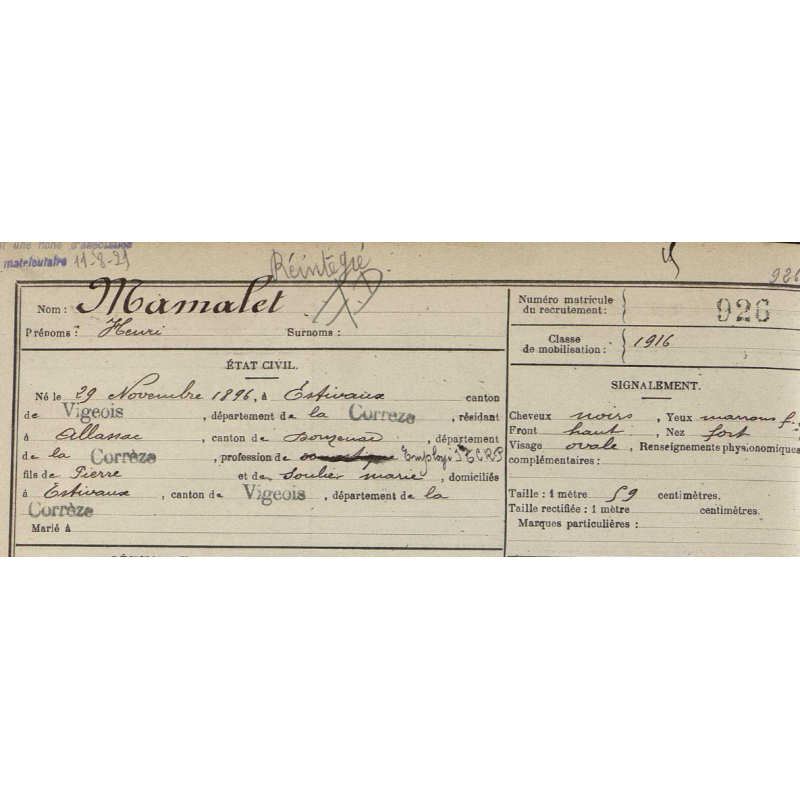 une note d'association
matriculaire 11-8-21
Réintégré
926
Nom : Mamalet
Prénoms : Henri Surnoms :
Numéro matricule
du recrutement : 926
Classe
de mobilisation : 1916
ÉTAT CIVIL.
Né le 29 Novembre 1896, à Estivaux canton
de Vigeois, département de la Corrèze, résidant
à Allassac, canton de Donzenac, département
de la Corrèze, profession de Employé STCRP
fils de Pierre et de Soulier marie, domiciliés
à Estivaux, canton de Vigeois, département de la
Corrèze
Marié à
SIGNALEMENT.
Cheveux noirs, Yeux marrons f.
Front haut, Nez fort
Visage ovale, Renseignements physionomiques
complémentaires :
Taille : 1 mètre 59 centimètres.
Taille rectifiée : 1 mètre centimètres.
Marques particulières :